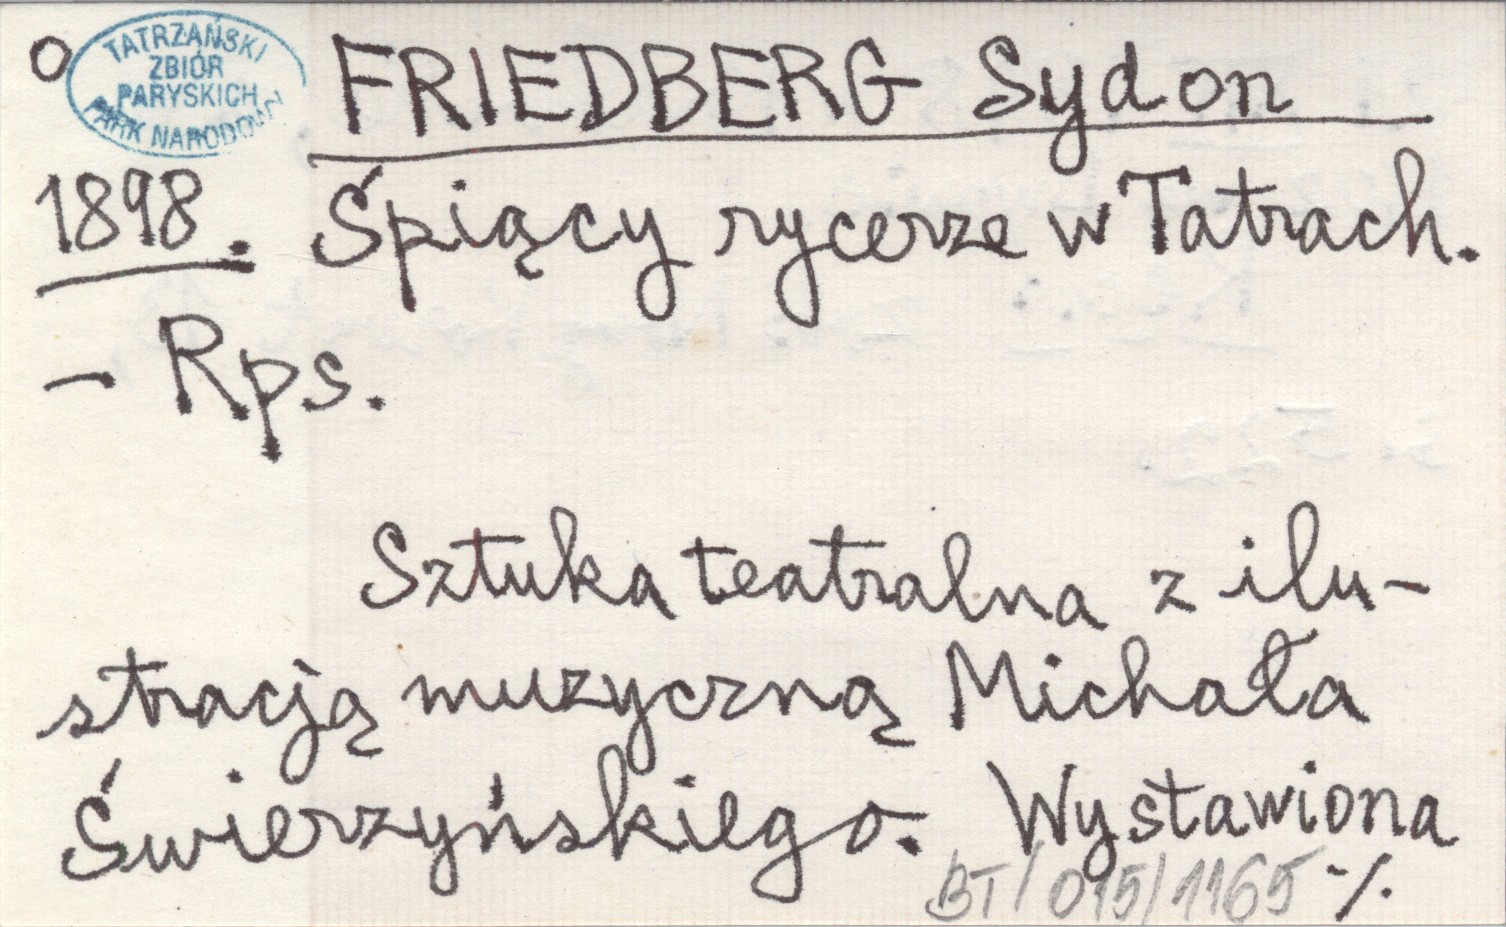 O
TATRZAŃSKI
ZBIÓR
PARYSKICH
PARK NARODOWY
FRIEDBERG Sydon
1898. Śpiący rycerze w Tatrach.
- Rps.
Sztuka teatralna z ilu-
stracją muzyczną Michała
Świerzyńskiego. Wystawiona
BT/015/1165 -/.